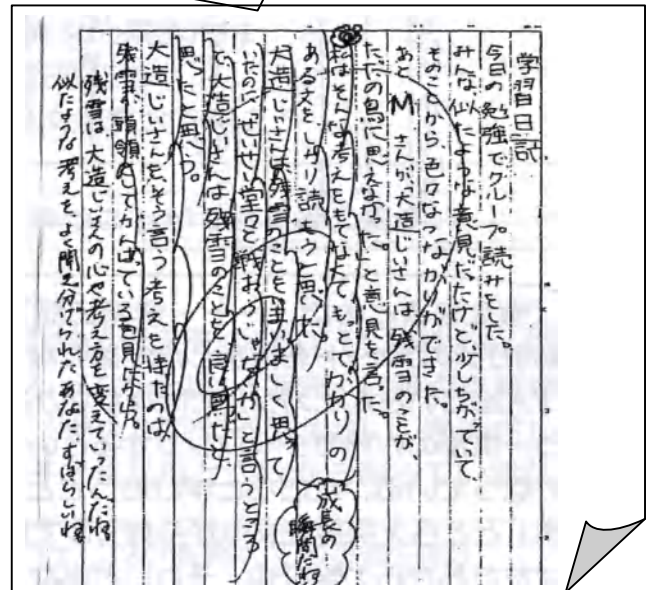 学習日記
今日の勉強でグループ読みをした。
みんな、似たような意見だたけど、少しちがていて、
そのことから、色々なつながりができた。
あと M さんが、「大造じいさんは、残雪のことが、
ただの鳥に思えなかった。」と意見を言った。
私はそんな考えをもてなくて、もっと、てがかりの
ある文をしっかり読もうと思った。
成長の瞬間だね
大造じいさんは残雪のことを、 思って
いたのに「せいせい堂々と戦おうじゃないか」と言うところ
で、大造じいさんは残雪のことを、 と
思ったと思う。
大造じいさんを、そう言う考えを持たのは、
残雪が頭領としてがんばっている 見たから。
残雪は、大造じいさんの心や考え方を変えていったんだね。
似たような考えを、よく聞き分けられたあなた、すばらしいね。